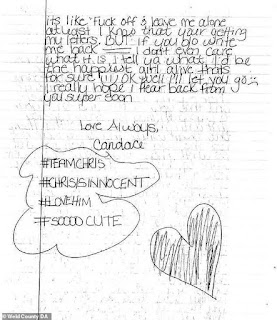 its like fuck off & leave me alone
atleast I know that your getting
my letters. BUT if you do write
me back I don't even care
what it is I tell ya what, I'd be
the happiest girl alive thats
for sure!!!! OK well I'll let you go
I really hope I hear back from
you super soon
Love Always,
Candace
#TEAMCHRIS
#CHRISISINNOCENT
#LOVEHIM
#SOOOO CUTE
© Weld County DA